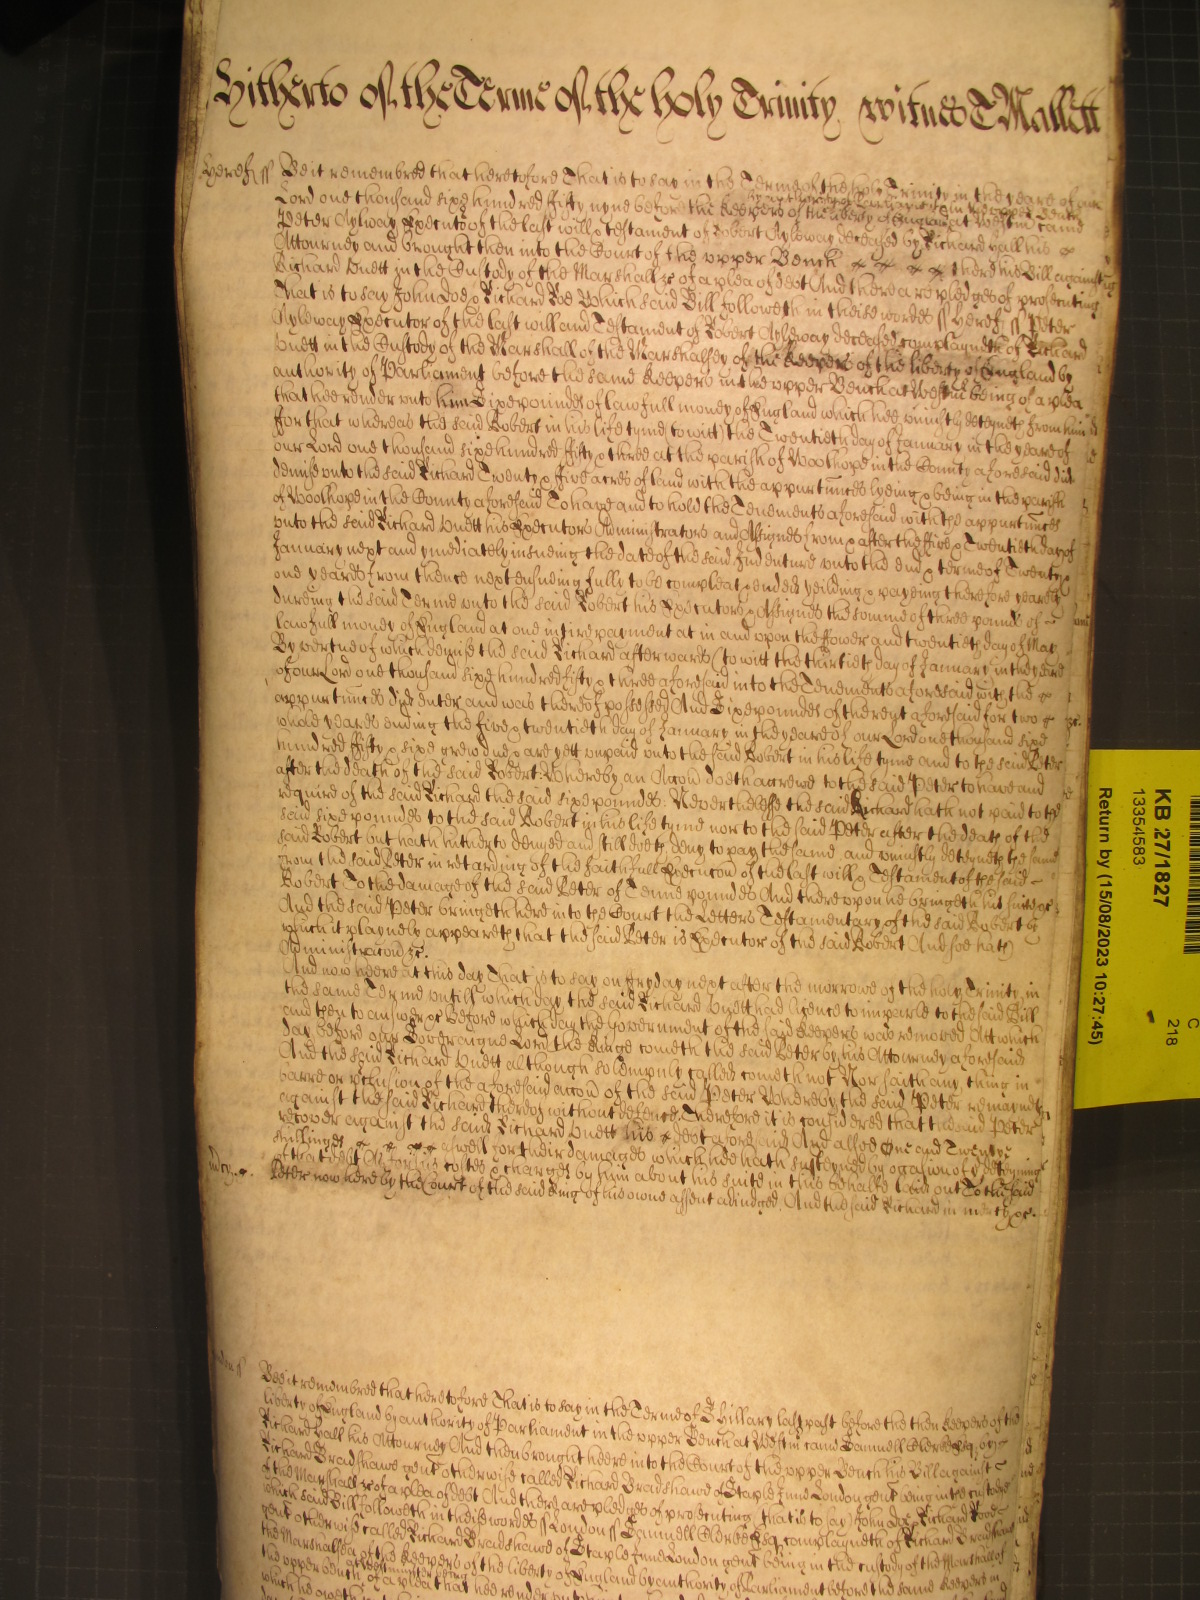 Hitherto of the Terme of the holy Trinity witnes T Mallett
Heref ss Be it remembred that heretofore That is to say in the Terme of the holy Trinity in the yeare of our
Lord one thousand sixe hundred fifty nyne before the keepers of the liberty of England by authority of Parliament in the upper Bench at Westm came
Peeter Aylway Executor of the last will & testament of Robert Ayleway deceased by Richard Hall his
Attourney and brought then into the Court of the upper Bench there his Bill against
Richard Unett in the Custody of the Marshall &c of a plea of debt And there are pledges of prosecuting
That is to say John Doe & Richard Roe Which said Bill followeth in theise wordes ss Heref ss Peter
Ayleway Executor of the last will and Testament of Robert Ayleway deceased complayneth of Richard
Unett in the Custody of the Marshall of the Marshalsey of the keepers of the liberty of England by
authority of Parliament before the same keepers in the upper Bench at Westm being of a plea
that hee render unto him Sixe poundes of lawfull money of England which hee uniustly deteyneth from him
for that whereas the said Robert in his life tyme (to witt) the Twentieth day of January in the yeare of
our Lord one thousand sixe hundred fifty & three at the parish of Woolhope in the County aforesaid did
demise unto the said Richard Twenty & five acres of land with the appurtunces lyeing & being in the parish
of Woolhope in the County aforesaid To have and to hold the Tenements aforesaid with the appurtunces
unto the said Richard Unett his Executors Administrators and Assignes from & after the five & Twentieth day of
January next and ymediately insueing the date of the said Indenture unto the end & terme of Twenty &
one yeares from thence next ensueing fully to be compleat & ended yeilding & payeing therefore yearely
dureing the said Terme unto the said Robert his Executors & Assignes the somme of three pounds of
lawfull money of England at one intire payment at in and upon the ffower and twentieth day of May
By vertue of which demise the said Richard afterwards (to witt the thirtieth day of January in the yeare
of our Lord one thousand sixe hundred fifty & three aforesaid into the Tenements aforesaid with the
appurtunces did enter and was thereof possessed And Sixe poundes of the rent aforesaid for two
whole yeares ending the five & twentieth day of January in the yeare of our Lord one thousand sixe
hundred fifty & sixe grew due & are yett unpaid unto the said Robert in his life tyme and to the said Peter
after the death of the said Robert: Whereby an Accon doeth accrewe to the said Peter to have and
require of the said Richard the said sixe poundes: Neverthelesse the said Richard hath not paid to the
said sixe poundes to the said Robert in his life tyme nor to the said Peter after the death of the
said Robert but hath hitherto denyed and still doeth deny to pay the same and uniustly deteyneth the same
from the said Peter in retarding of the faithfull Execucon of the last will & Testament of the said
Robert To the damage of the said Peter of Tenne poundes And thereupon he bringeth his suite &c
And the said Peter bringeth here into the Court the Letters Testamentary of the said Robert by
which it playnely appeareth that the said Peter is Executor of the said Robert And soe hath
Administracon &c.
And now heere at this day That is to say on fryday next after the morrowe of the holy Trinity in
the same Terme untill which day the said Richard Unett had licence to imparle to the said Bill
and then to answere &c Before which day the Government of the said keepers was removed Att which
day before our Soveraigne Lord the kinge cometh the said Peter by his Attourney aforesaid
And the said Richard Unett although solempnly called cometh not Nor saith any thing in
barre or preclusion of the aforesaid accon of the said Peter Whereby the said Peter remayneth
against the said Richard thereof without defence Therefore it is considered that the said Peter
recover against the said Richard Unett his debt aforesaid And alsoe One and Twenty
shillinges aswell for their damages which hee hath susteyned by occasion of the deteyning
of that debt As for his costes & charges by him about his suite in this behalfe laid out To the said
Peter now here by the Court of the said King of his owne assent adiudged. And the said Richard in mercy &c.
Bee it remembred that heretofore That is to say in the Terme of St Hillary last past before the then keepers of the
liberty of England by authority of Parliament in the upper Bench at Westm came Samuell Clerke Esq by
Richard Hall his Attourney And then brought heere into the Court of the upper Bench his Bill against
Richard Bradshawe gent otherwise called Richard Bradshawe of Staple Inne London gent being in the custody
of the Marshall &c of a plea of debt And there are pledges of prosecuting that is to say John Doe & Richard Roe
which said Bill followeth in theise wordes ss London ss Samuell Clerke Esq complayneth of Richard Bradshawe
gent otherwise called Richard Bradshawe of Staple Inne London gent being in the custody of the Marshall of
the Marshalsea of the keepers of the liberty of England by authority of Parliament before the same keepers in
the upper bench at Westminster being of a plea that hee render unto him
which he oweth
C
218
KB 27/1827
13354583
Return by (15/08/2023 10:27:45)